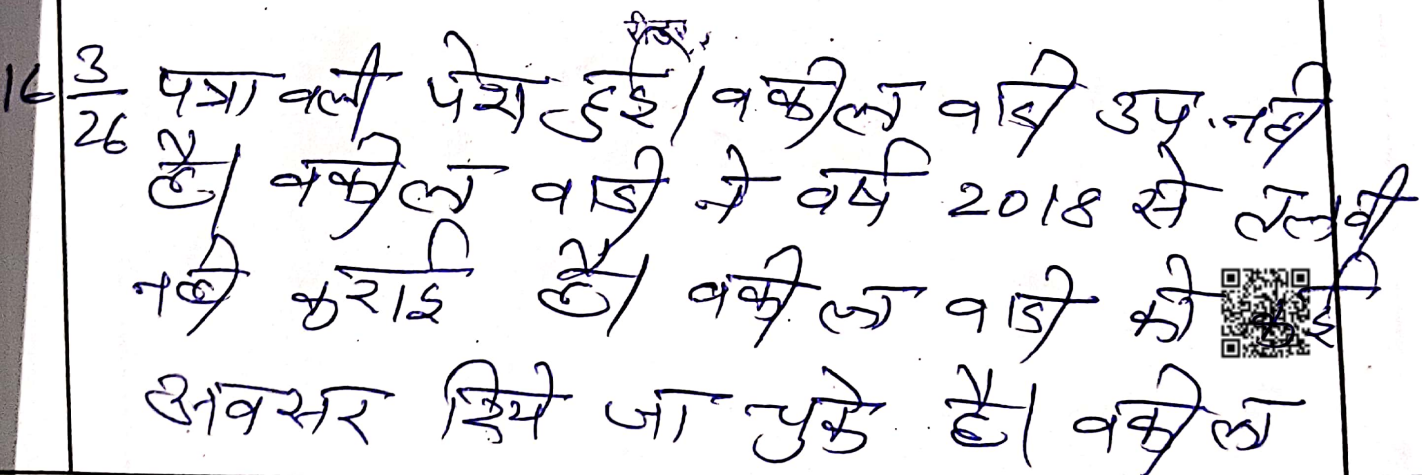 16 3/26 पत्रावली पेश हुई। वकील वादी उप. नही
है। वकील वादी ने वर्ष 2018 से तलवी
नही कराई है। वकील वादी को कई
अवसर दिये जा चुके है। वकील